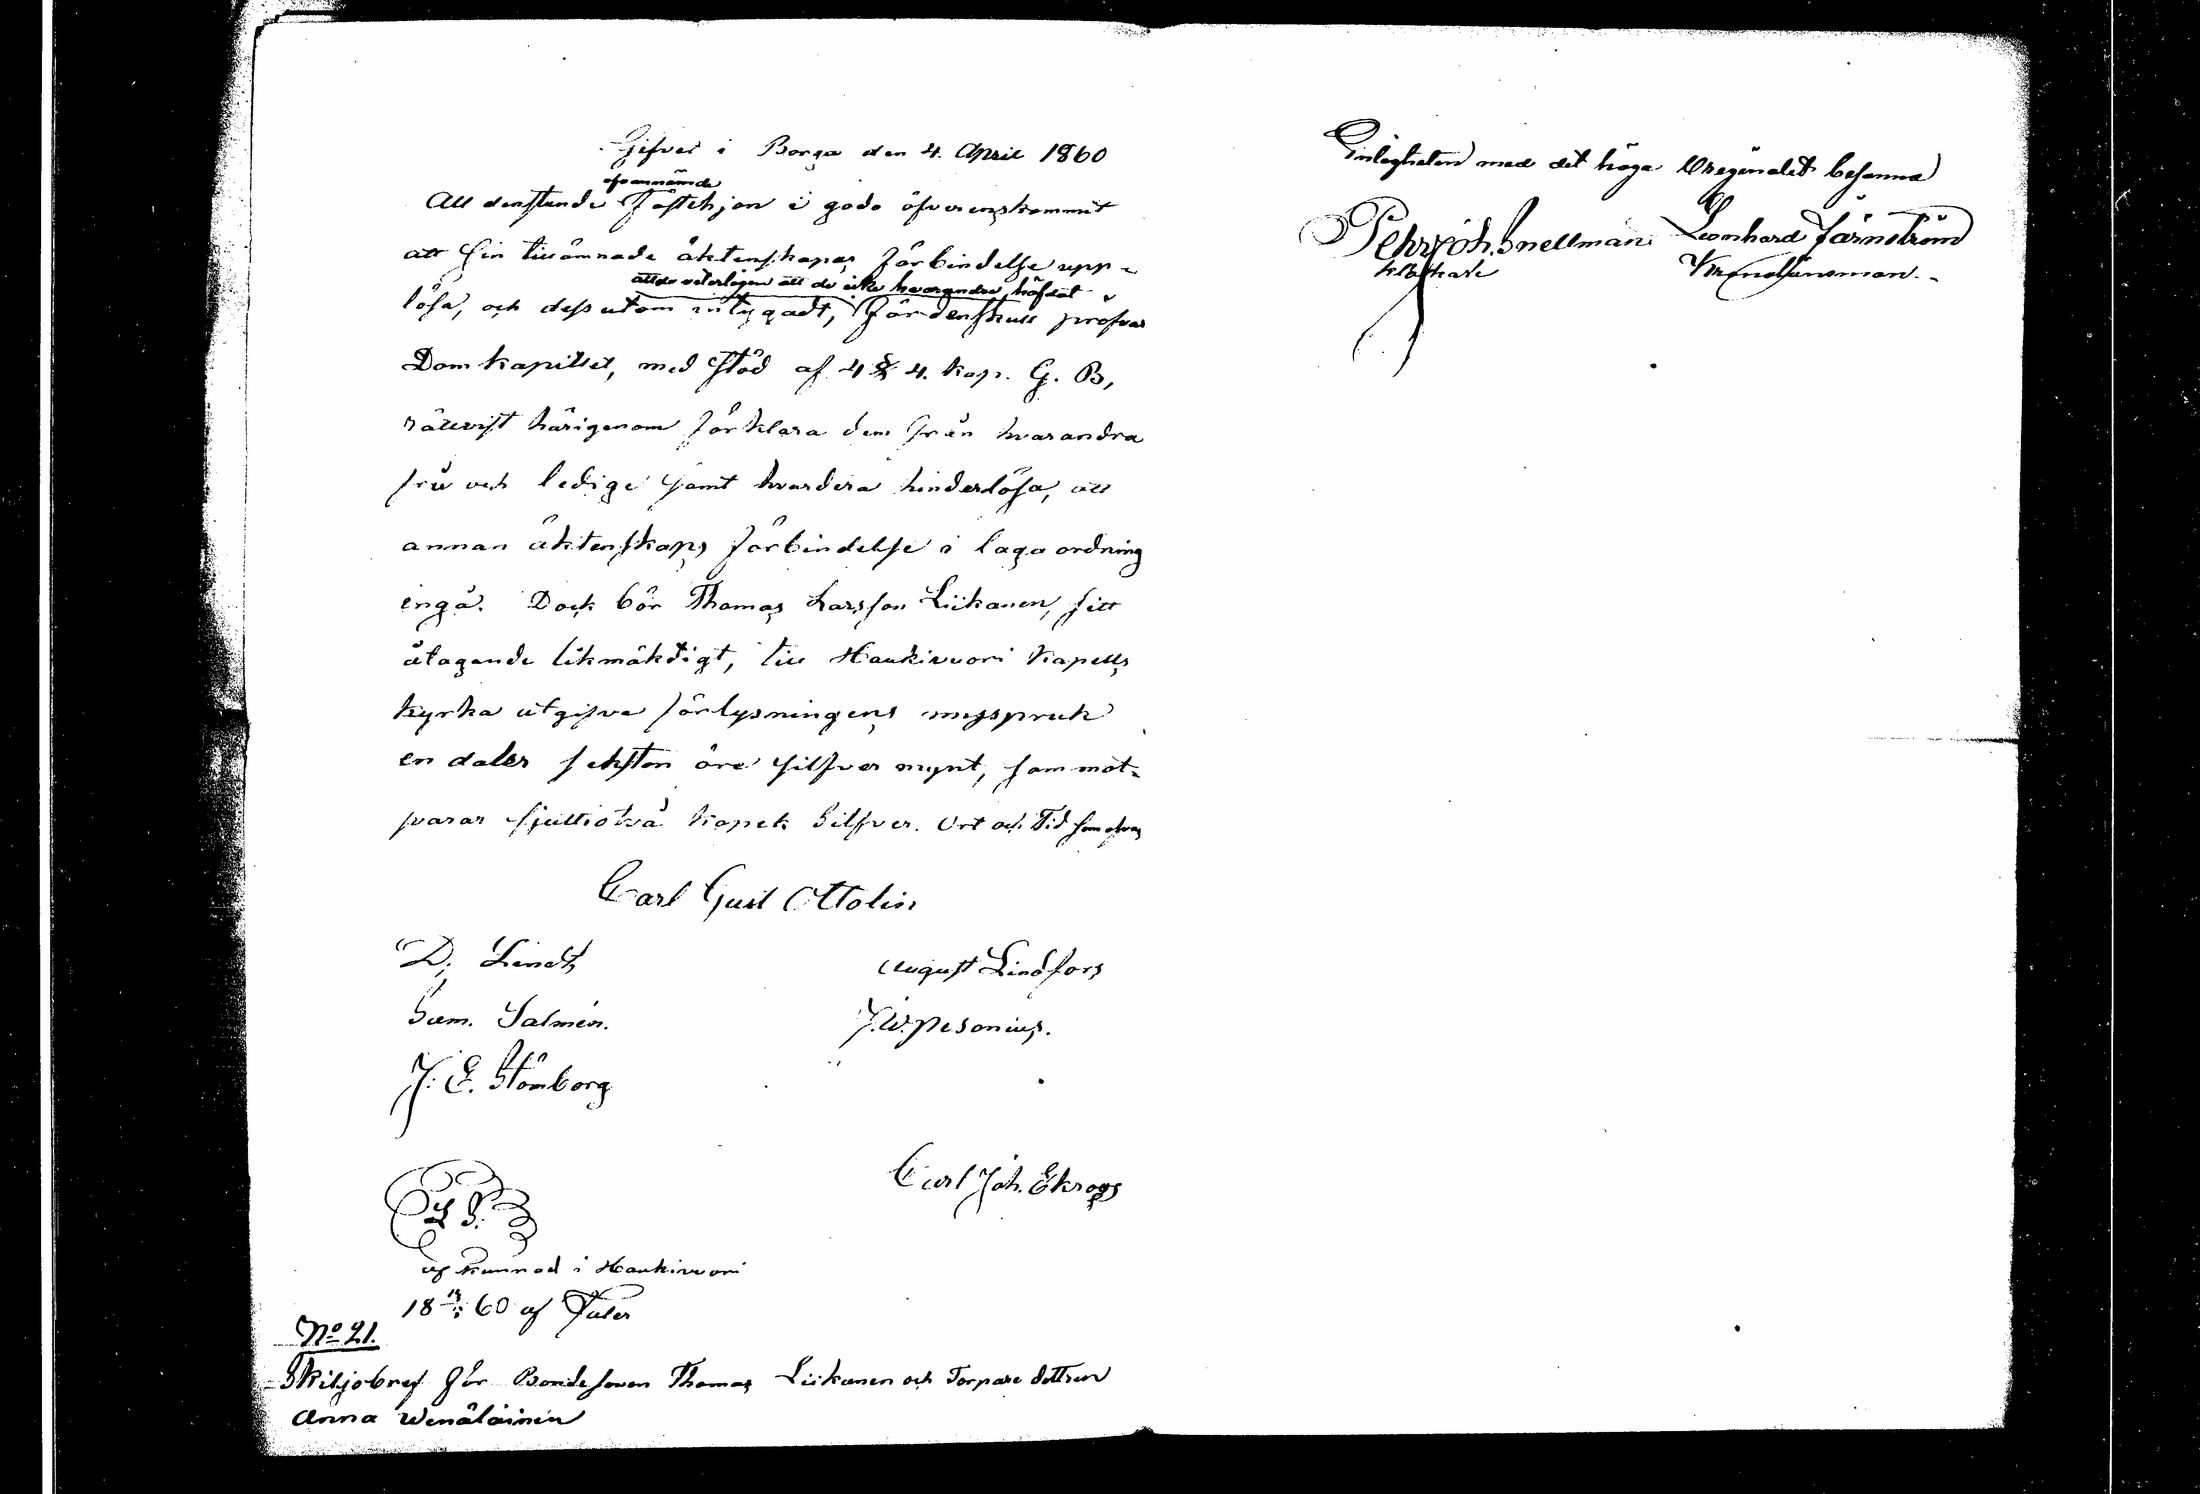 Gifvet i Borgå den 4. April 1860
ofvannämde
All denstund Fästehjon i godo öfverenskommit
att sin tillämnade äktenskaps förbindelse upp-
att de icke hvarandra häfdat
lösa, och dessutom intygadt, fördenskull pröfvar
Domkapitlet, med stöd af 4 § 4. kap. G. B,
rättvist härigenom förklara dem från hvarandra
fria och ledige samt hvardera hinderlösa, att
annan äktenskaps förbindelse i laga ordning
ingå. Dock bör Thomas Larsson Liikanen, sitt
åtagande likmäktigt, till Haukivuori Kapells
kyrka utgifva förlysningens
en daler sexton öre silfver mynt, som mot-
svarar sjuttiotvå kopek Silfver. Ort och Tid som ofvan
Carl Gust Ottolin
D. Lindh August Lindfors
Sam. Salmén. J. W. Pesonius.
J. E. Stömborg
Carl Joh. Ekroos
L. S.
af kunnad i Haukivuori
18 60 af
No 21.
Skiljobref för Bondesonen Thomas Liikanen och Torpare dottren
Anna Wenäläinen
Enligheten med det höga Oreginalet besanna
Pehr Joh. Snellman Leonhard Järnström
klåckare Kronolänsman.